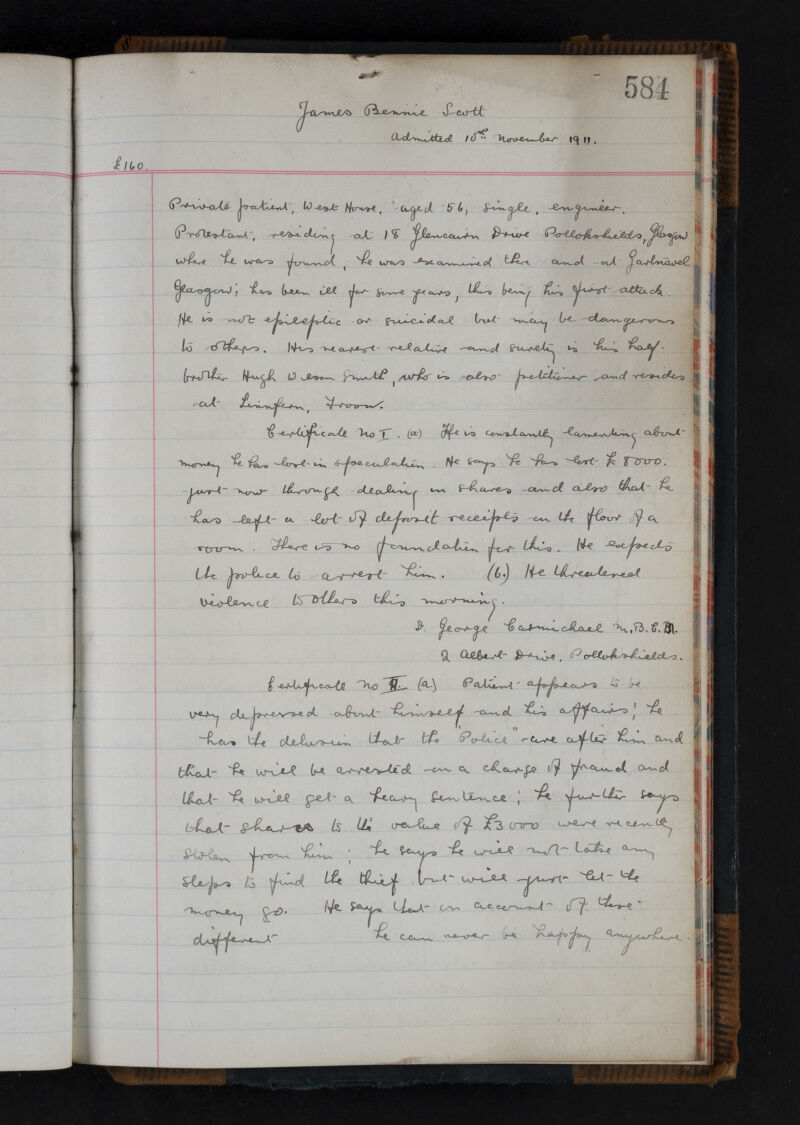 584
James Bennie Scott
Admitted 10th November 1911.
£160.
Private patient, West House, aged 56, single, engineer.
Protestant, residing at 18 Glencairn Drive Pollokshields, Glasgow
where he was found, he was examined there and at Gartnavel
Glasgow; has been ill for some years, this being his first attack.
He is not epileptic or suicidal but may be dangerous
to others. His nearest relative and surety is his half-
brother Hugh Wilson Smith, who is also petitioner and resides
at Linnfern, Troon.
Certificate No I. (a) He is constantly lamenting about
money he has lost in speculation. He says he has lost £8000.
just now through dealing in shares and also that he
has left a lot of deposit receipts on the floor of a
room. There is no foundation for this. He expects
the police to arrest him. (b.) He threatened
violence to others this morning.
D. George Carmichael M.B.C.M.
2 Albert Drive, Pollokshields.
Certificate No II. (a.) Patient appears to be
very depressed about himself and his affairs; he
has the delusion that the "Police" are after him and
that he will be arrested on a charge of fraud and
that he will get a heavy sentence; he further says
that shares to the value of £3000 were recently
stolen from him; he says he will not take any
steps to find the thief but will just let the
money go. He says that on account of these
different he can never be happy anywhere.